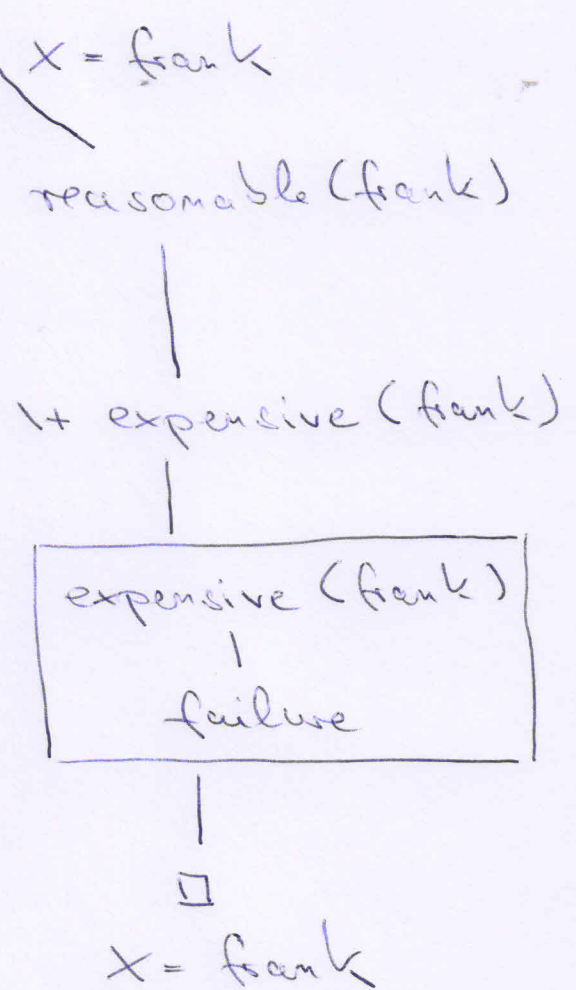 X = frank
reasonable (frank)
\+ expensive (frank)
expensive (frank)
failure
□
X = frank